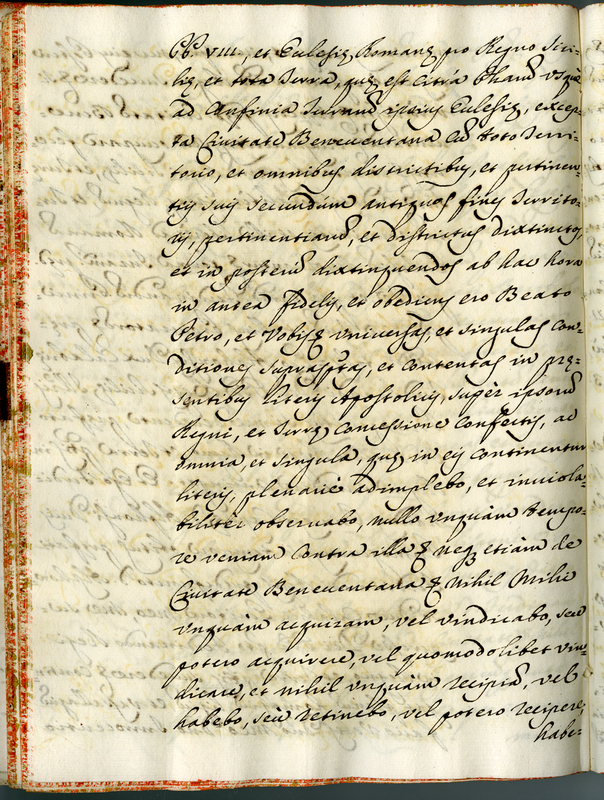 PP. VIII., et Eulesię Romanę pro Regno Sici-
lię, et tota Terra, quę est Citra Pharũ usque
ad Confinia Terrarũ ipsius Eulesię, excep-
ta Civitate Beneventana Cũ toto Terri-
torio, et omnibus districtibus, et pertinen-
tijs suis secundùm antiquos fines Territo-
rij, pertinentiarũ, et districtus distinctos,
et in posterũ distinguendos ab hac hora
in antea fidelis, et obediens ero Beato
Petro, et Vobis & universas, et singulas Con-
ditiones suprasptas, et Contentas in prę-
sentibus literis Apostolicis, super ipsorũ
Regni, et Terrę Concessione Confectis, ac
omnia, et singula, quę in eis Continentur
literis, plenariè adimplebo, et inviola-
bilitèr observabo, nullo unquàm tempo-
re veniam Contra illa & neq; etiàm de
Civitate Beneventana & nihil Mihi
unquàm acquiram, vel vindicabo, seu
potero acquirere, vel quomodolibet vin-
dicare, et nihil unquàm recipiã, vel
habebo, seù retinebo, vel potero recipere,
habe-